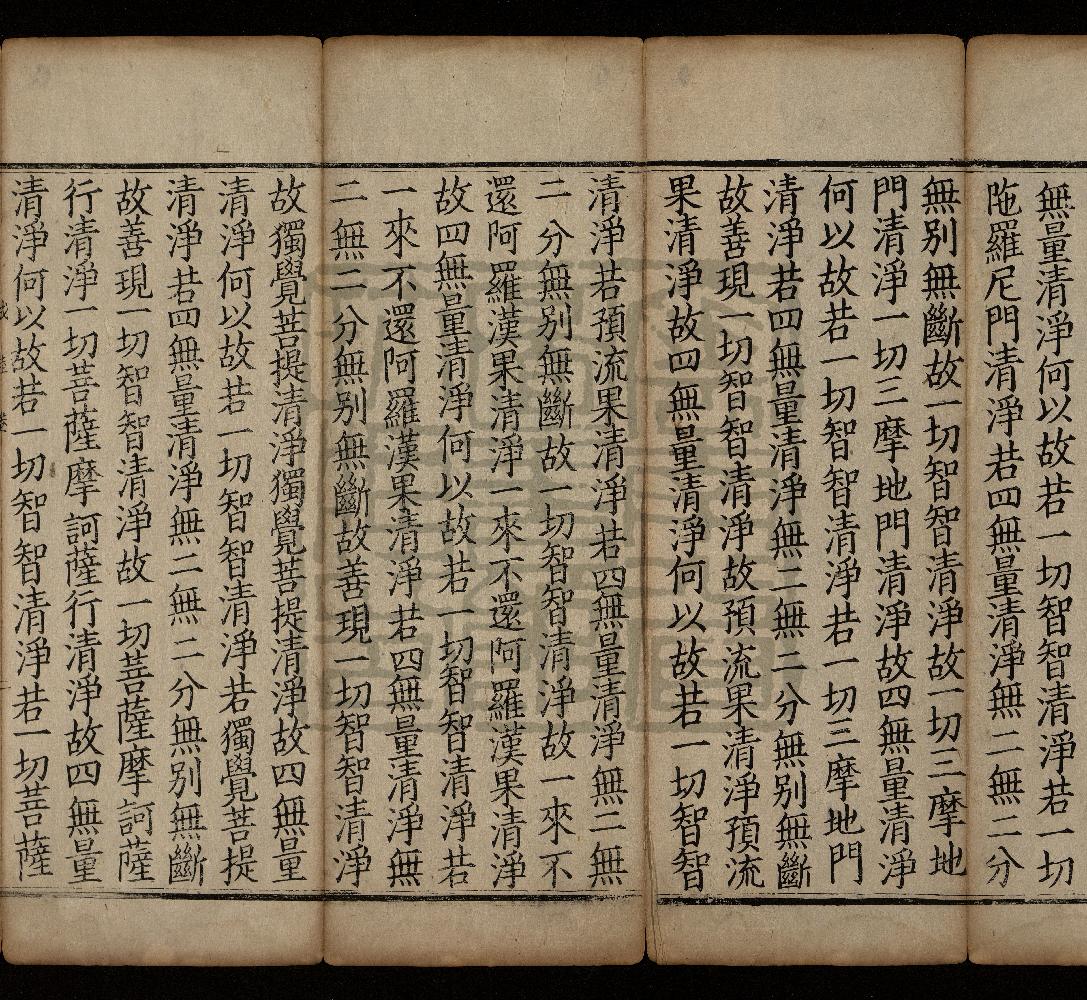 無量清淨何以故若一切智智清淨若一切
陁羅尼門清淨若四無量清淨無二無二分
無別無斷故一切智智清淨故一切三摩地
門清淨一切三摩地門清淨故四無量清淨
何以故若一切智智清淨若一切三摩地門
清淨若四無量清淨無二無二分無別無斷
故善現一切智智清淨故預流果清淨預流
果清淨故四無量清淨何以故若一切智智
清淨若預流果清淨若四無量清淨無二無
二分無別無斷故一切智智清淨故一來不
還阿羅漢果清淨一來不還阿羅漢果清淨
故四無量清淨何以故若一切智智清淨若
一來不還阿羅漢果清淨若四無量清淨無
二無二分無別無斷故善現一切智智清淨
故獨覺菩提清淨獨覺菩提清淨故四無量
清淨何以故若一切智智清淨若獨覺菩提
清淨若四無量清淨無二無二分無別無斷
故善現一切智智清淨故一切菩薩摩訶薩
行清淨一切菩薩摩訶薩行清淨故四無量
清淨何以故若一切智智清淨若一切菩薩